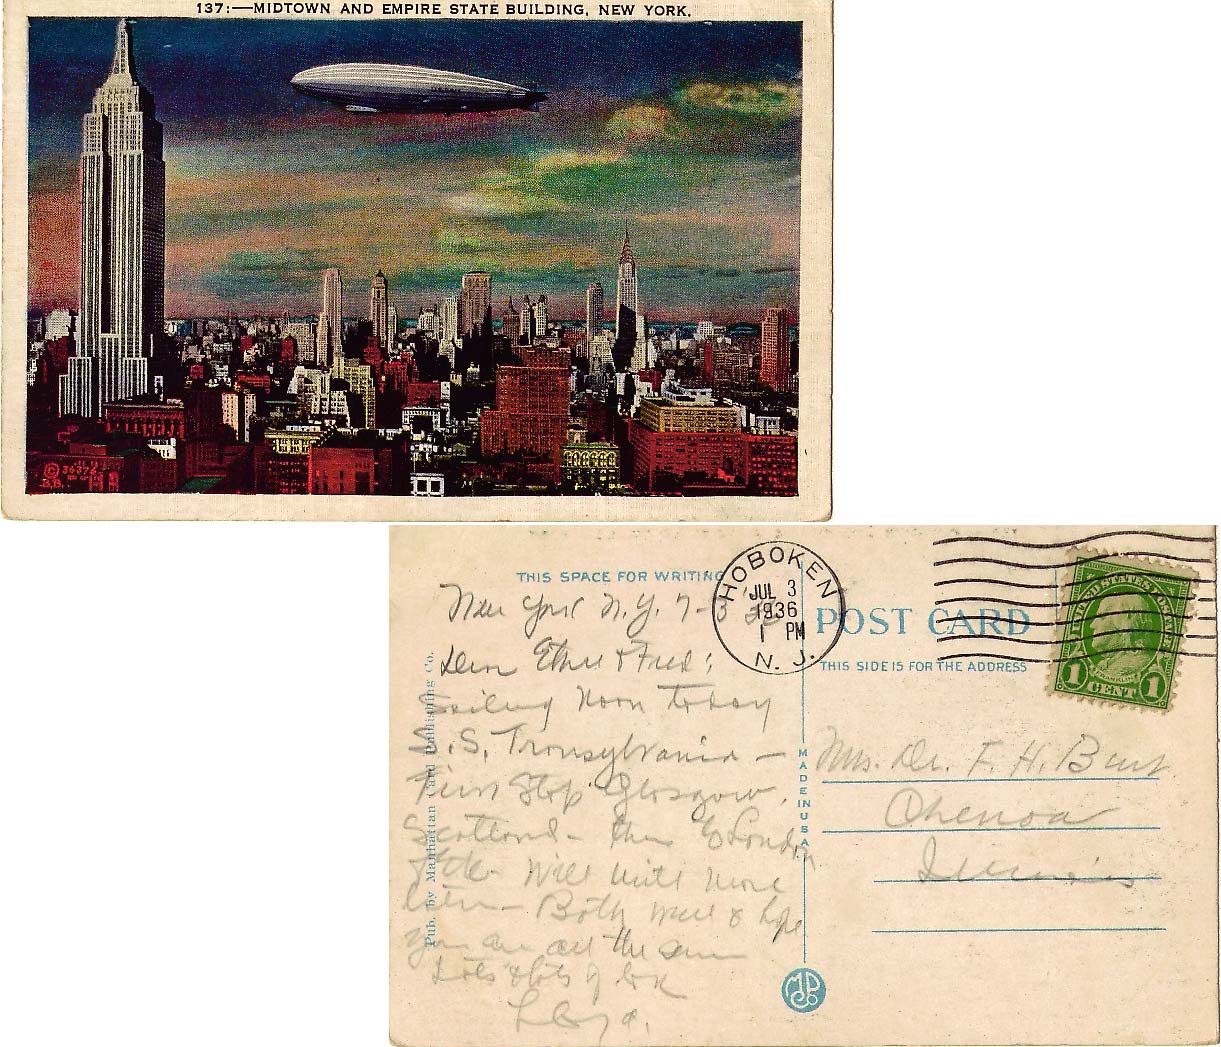 137:—MIDTOWN AND EMPIRE STATE BUILDING, NEW YORK.
© 36372
THIS SPACE FOR WRITING
HOBOKEN
JUL 3
1936
1 PM
N. J.
UNITED STATES POSTAGE
FRANKLIN
1 CENT 1
POST CARD
THIS SIDE IS FOR THE ADDRESS
New York N.Y. 7-3
Dear Ethel & Fred;
Sailing Noon today
S.S. Transylvania —
First Stop Glasgow,
Scotland — then to London
etc. Will write more
later — Both well & hope
you are all the same
Lots & lots of
Mrs. Dr. F. H. Burt
Chenoa
Illinois
Pub. by Manhattan Card Publishing Co.
MADE IN U.S.A.